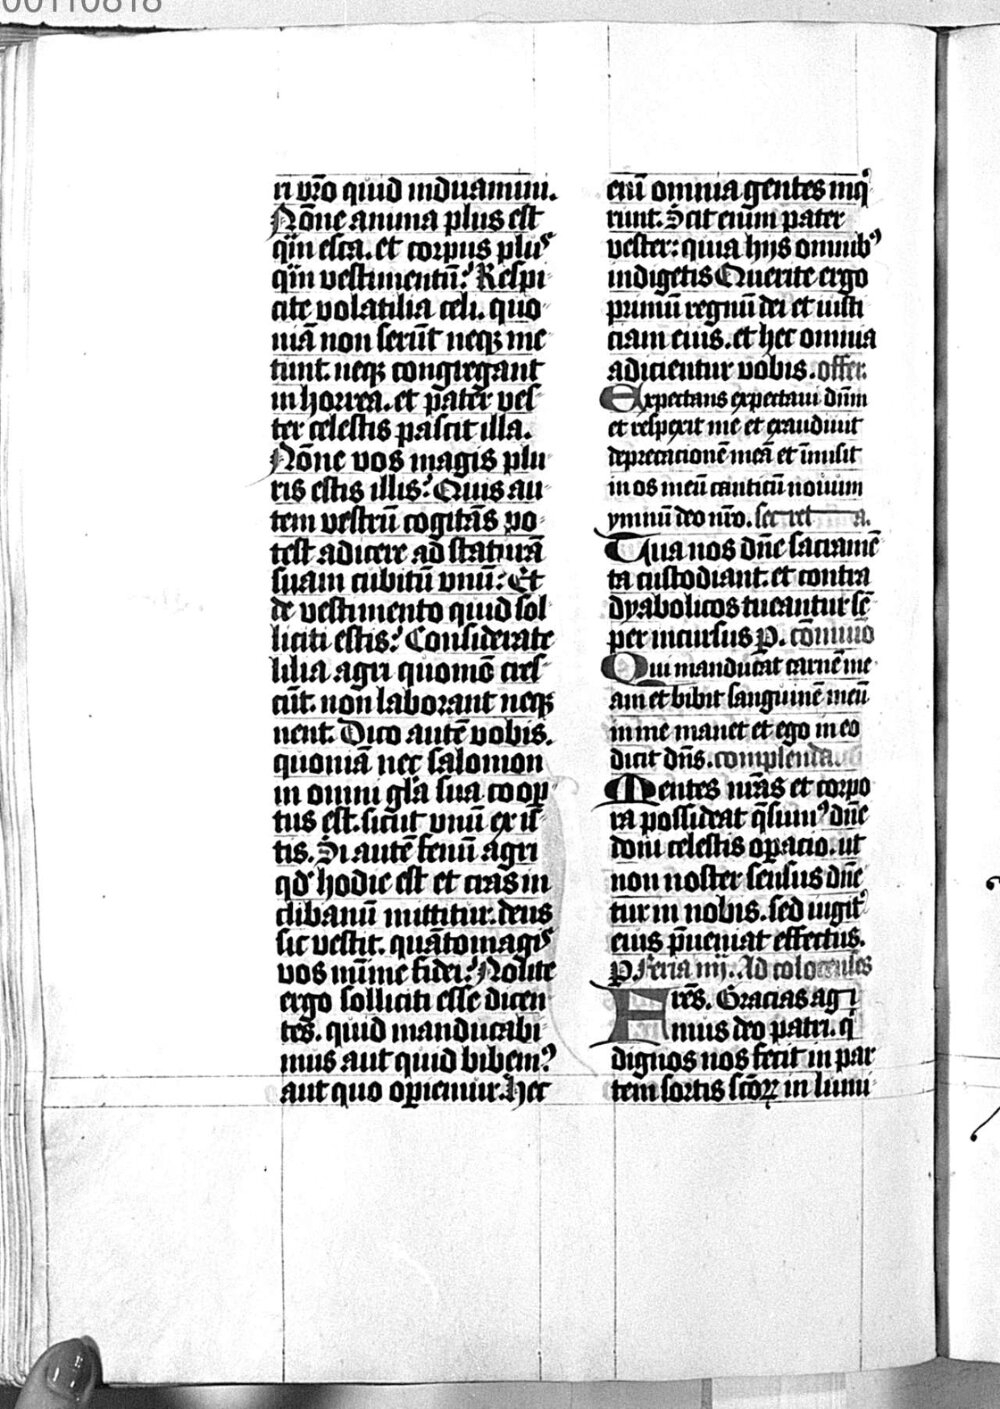 00110818
ri vr̄o quid induamini.
Nōne anima plus est
q̄m esca. et corpus plꝰ
q̄m vestimentū? Respi
cite volatilia celi. quo
niā non serūt neqꝫ me
tunt. neqꝫ congregant
in horrea. et pater ves
ter celestis pascit illa.
Nōne vos magis plu
ris estis illis? Quis au
tem vestrū cogitās po
test adicere ad staturā
suam cubitū vnū? Et
de vestimento quid sol
liciti estis? Considerate
lilia agri quomō cres
cūt. non laborant neqꝫ
nent. Dico autē vobis.
quoniā nec salomon
in omni gl̄a sua coop
tus est. sicut vnū ex is
tis. Si autē fenū agri
qd̄ hodie est et cras in
clibanū mittitur. deus
sic vestit. quāto magis
vos mīme fidei? Nolite
ergo solliciti esse dicen
tes. quid manducabi
mus aut quid bibemꝰ
aut quo operiemur. Hec
enī omnia gentes inq̄
runt. Scit enim pater
vester: quia hijs omnibꝰ
indigetis Querite ergo
primū regnū dei et iusti
ciam eius. et hec omnia
adicientur vobis. offer.
Expectans expectaui dn̄m
et respexit me et exaudiuit
deprecacionē meā et īmisit
in os meū canticū nouum
ymnū deo nr̄o. secret a.
Tua nos dn̄e sacramē
ta custodiant. et contra
dyabolicos tueantur sē
per incursus P. cōmuō
Qui manducat carnē me
am et bibit sanguinē meū
in me manet et ego in eo
dicit dn̄s. complenda.
Mentes nr̄as et corpo
ra possideat q̄sumꝰ dn̄e
doni celestis opacio. ut
non noster sensus dn̄e
tur in nobis. sed iugit̄
eius p̄ueniat effectus.
P. Feria iiij. Ad colocenses
Fres. Gracias agi
mus deo patri. q̄
dignos nos fecit in par
tem sortis sc̄oꝝ in lumi